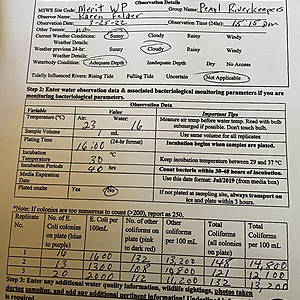 Observation Details
MSWS Site Code: Merit WP Group Name: Pearl Riverkeepers
Observer Name: Karen
Observation Time (24hr): 15:15
Other Testers:
Current Weather Conditions: Sunny Cloudy Rainy Windy
Weather Details:
Weather previous 24-hr: Sunny Cloudy Rainy Windy
Weather Details:
Waterbody Conditions: Adequate Depth Inadequate Depth No Access Dry
Tidally Influenced Rivers: Rising Tide Falling Tide Uncertain Not Applicable
Step 2: Enter water observation data & associated bacteriological monitoring parameters if you are
monitoring bacteriological parameters.
Observation Data
Variable Value Important Tips
Temperature (°C) Air: 23 Water: 16 Measure air temp before water temp. Read with bulb
submerged if possible. Don't touch bulb.
Sample Volume 1 mL Use same volume for all replicates
Plating Time 16:00 (24-hr format) Incubation begins when samples are plated.
Incubation
Temperature 30 °C Keep incubation temperature between 29 and 37 °C
Incubation Periods 40 hrs Count bacteria within 30-48 hours of incubation.
Media Expiration
Date Use this date format: Jul/2019 (from media box)
Plated onsite Yes No If not plated at sampling site, always transport on
ice and plate within 5 hours.
*Note: If colonies are too numerous to count (>200), report as 250.
Replicate
No. # E. Coli
colonies
on plate
(blue to
purple) E. Coli per
100mL # No. of other
coliforms on
plate (pink
to dark red) Other
coliforms
per 100 mL Total
Coliforms
(all colonies
on plate) Total
Coliforms
per 100 mL
1 16 1600 132 13,200 148 14,800
2 13 1300 108 10,800 121 12,100
3 20 2000 112 132 13,200
Step 3: Enter any additional water quality information, wildlife sightings, photos taken
during sampling, and add any additional pertinent information!
is required.